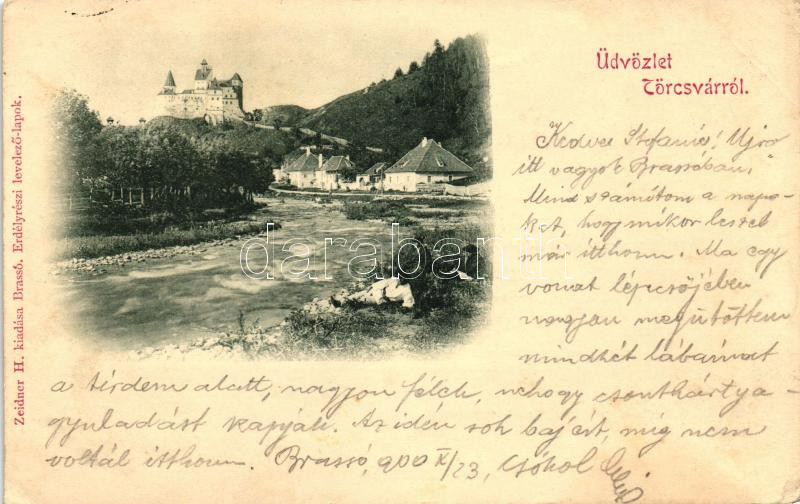 Üdvözlet
Törcsvárról.
Kedves Stefanie! Ujra
itt vagyok Brassóban.
Mind számítom a napo-
kat, hogy mikor leszel
már itthon. Ma egy
vonat lépcsőjében
nagyon megütöttem
mindkét lábamat
a térdem alatt, nagyon félek, nehogy csonthártya-
gyuladást kapjak. Az idén sok baj ért, míg nem
voltál itthon. Brassó, 900 X/23, Csókol
Zeidner H. kiadása Brassó. Erdélyrészi levelező-lapok.
darabanth